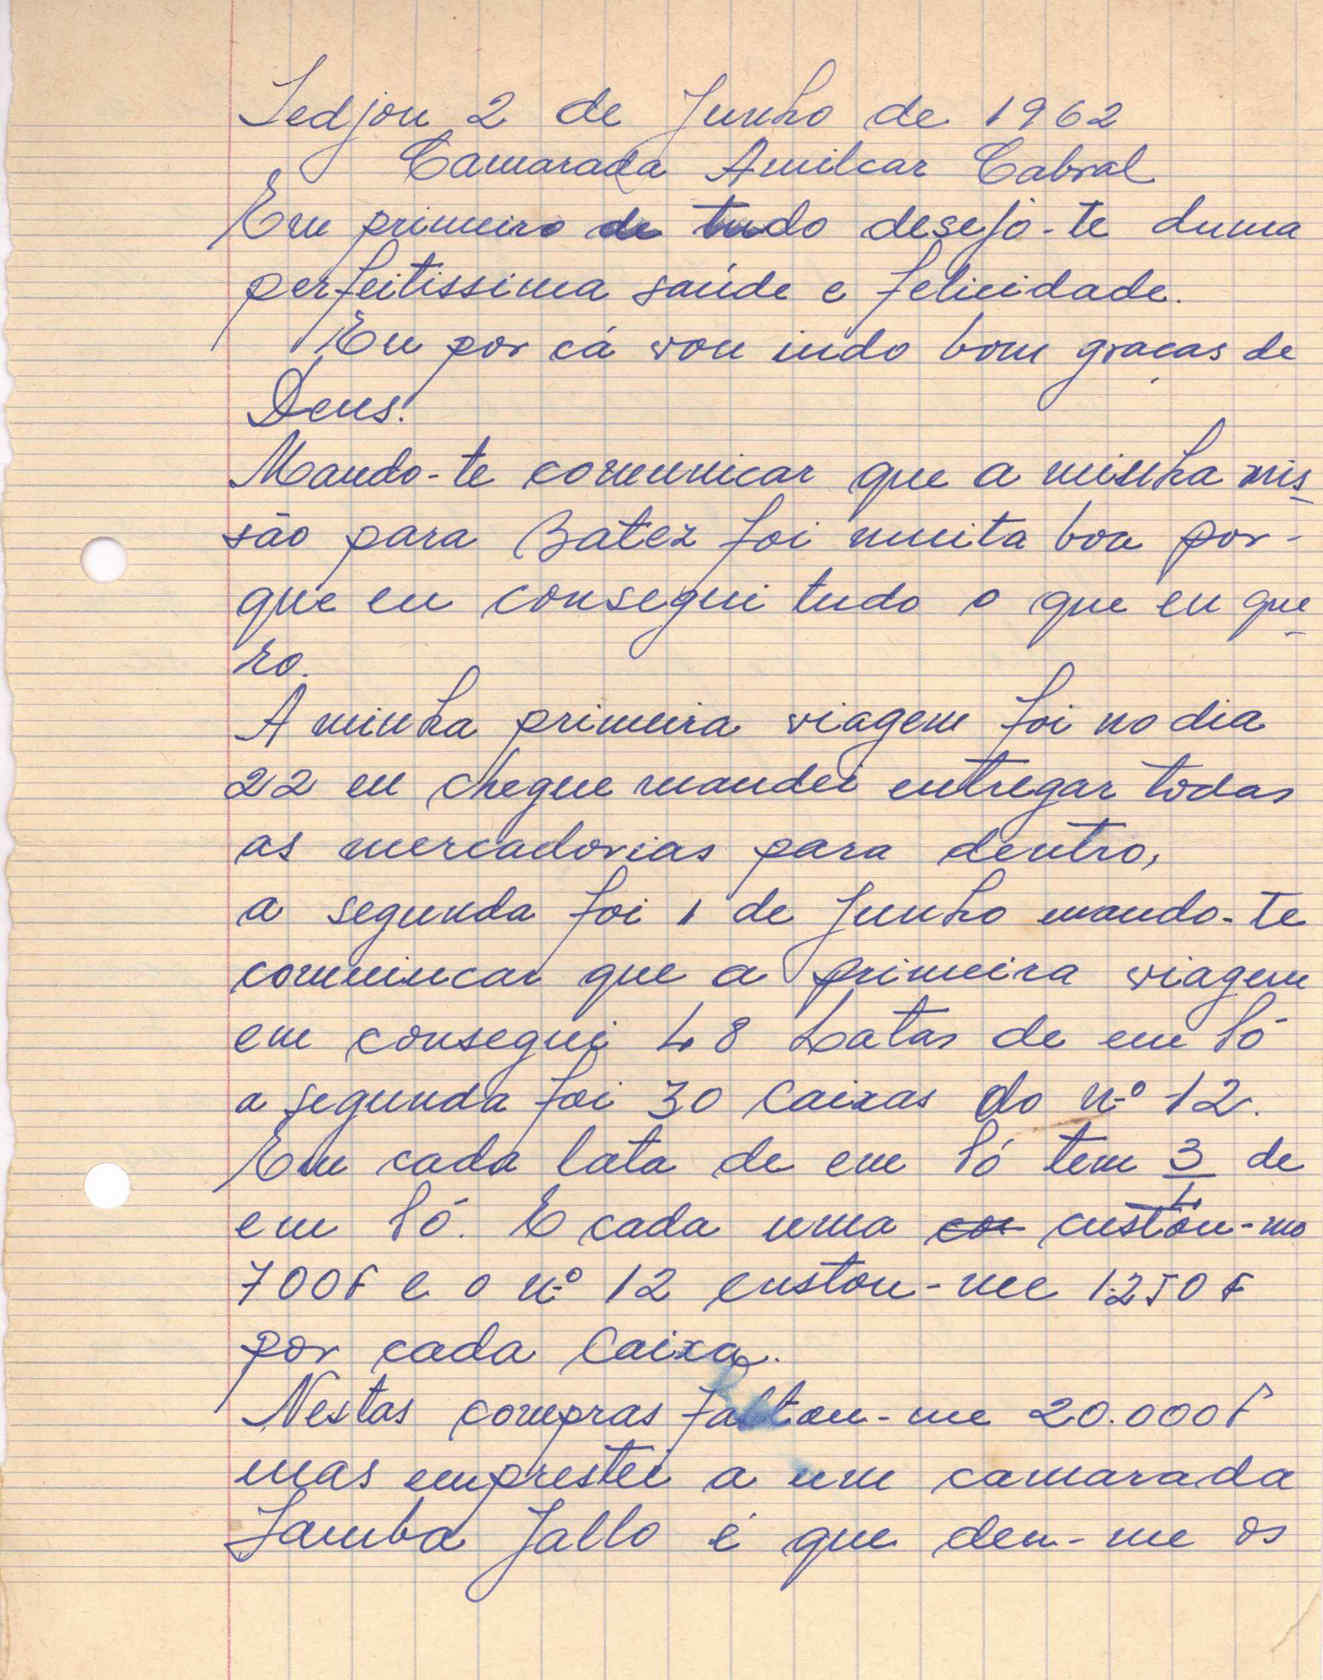 Sedjou 2 de Junho de 1962
Camarada Amilcar Cabral
Em primeiro de tudo desejo-te duma
perfeitissima saúde e felicidade.
Eu por cá vou indo bom graças de
Deus.
Mando-te comunicar que a minha mis
são para Batez foi muita boa por-
que eu consegui tudo o que eu que
ro.
A minha primeira viagem foi no dia
22 eu chegue mandei entregar todas
as mercadorias para dentro,
a segunda foi 1 de Junho mando-te
comunicar que a primeira viagem
eu consegui 48 Latas de em Pó
a segunda foi 30 Caixas do nº 12.
Em cada lata de em Pó tem 3/4 de
em Pó. E cada uma custou-me
700F e o nº 12 custou-me 1250F
por cada Caixa.
Nestas compras faltou-me 20.000F
mas emprestei a um camarada
Samba Jallo é que deu-me os